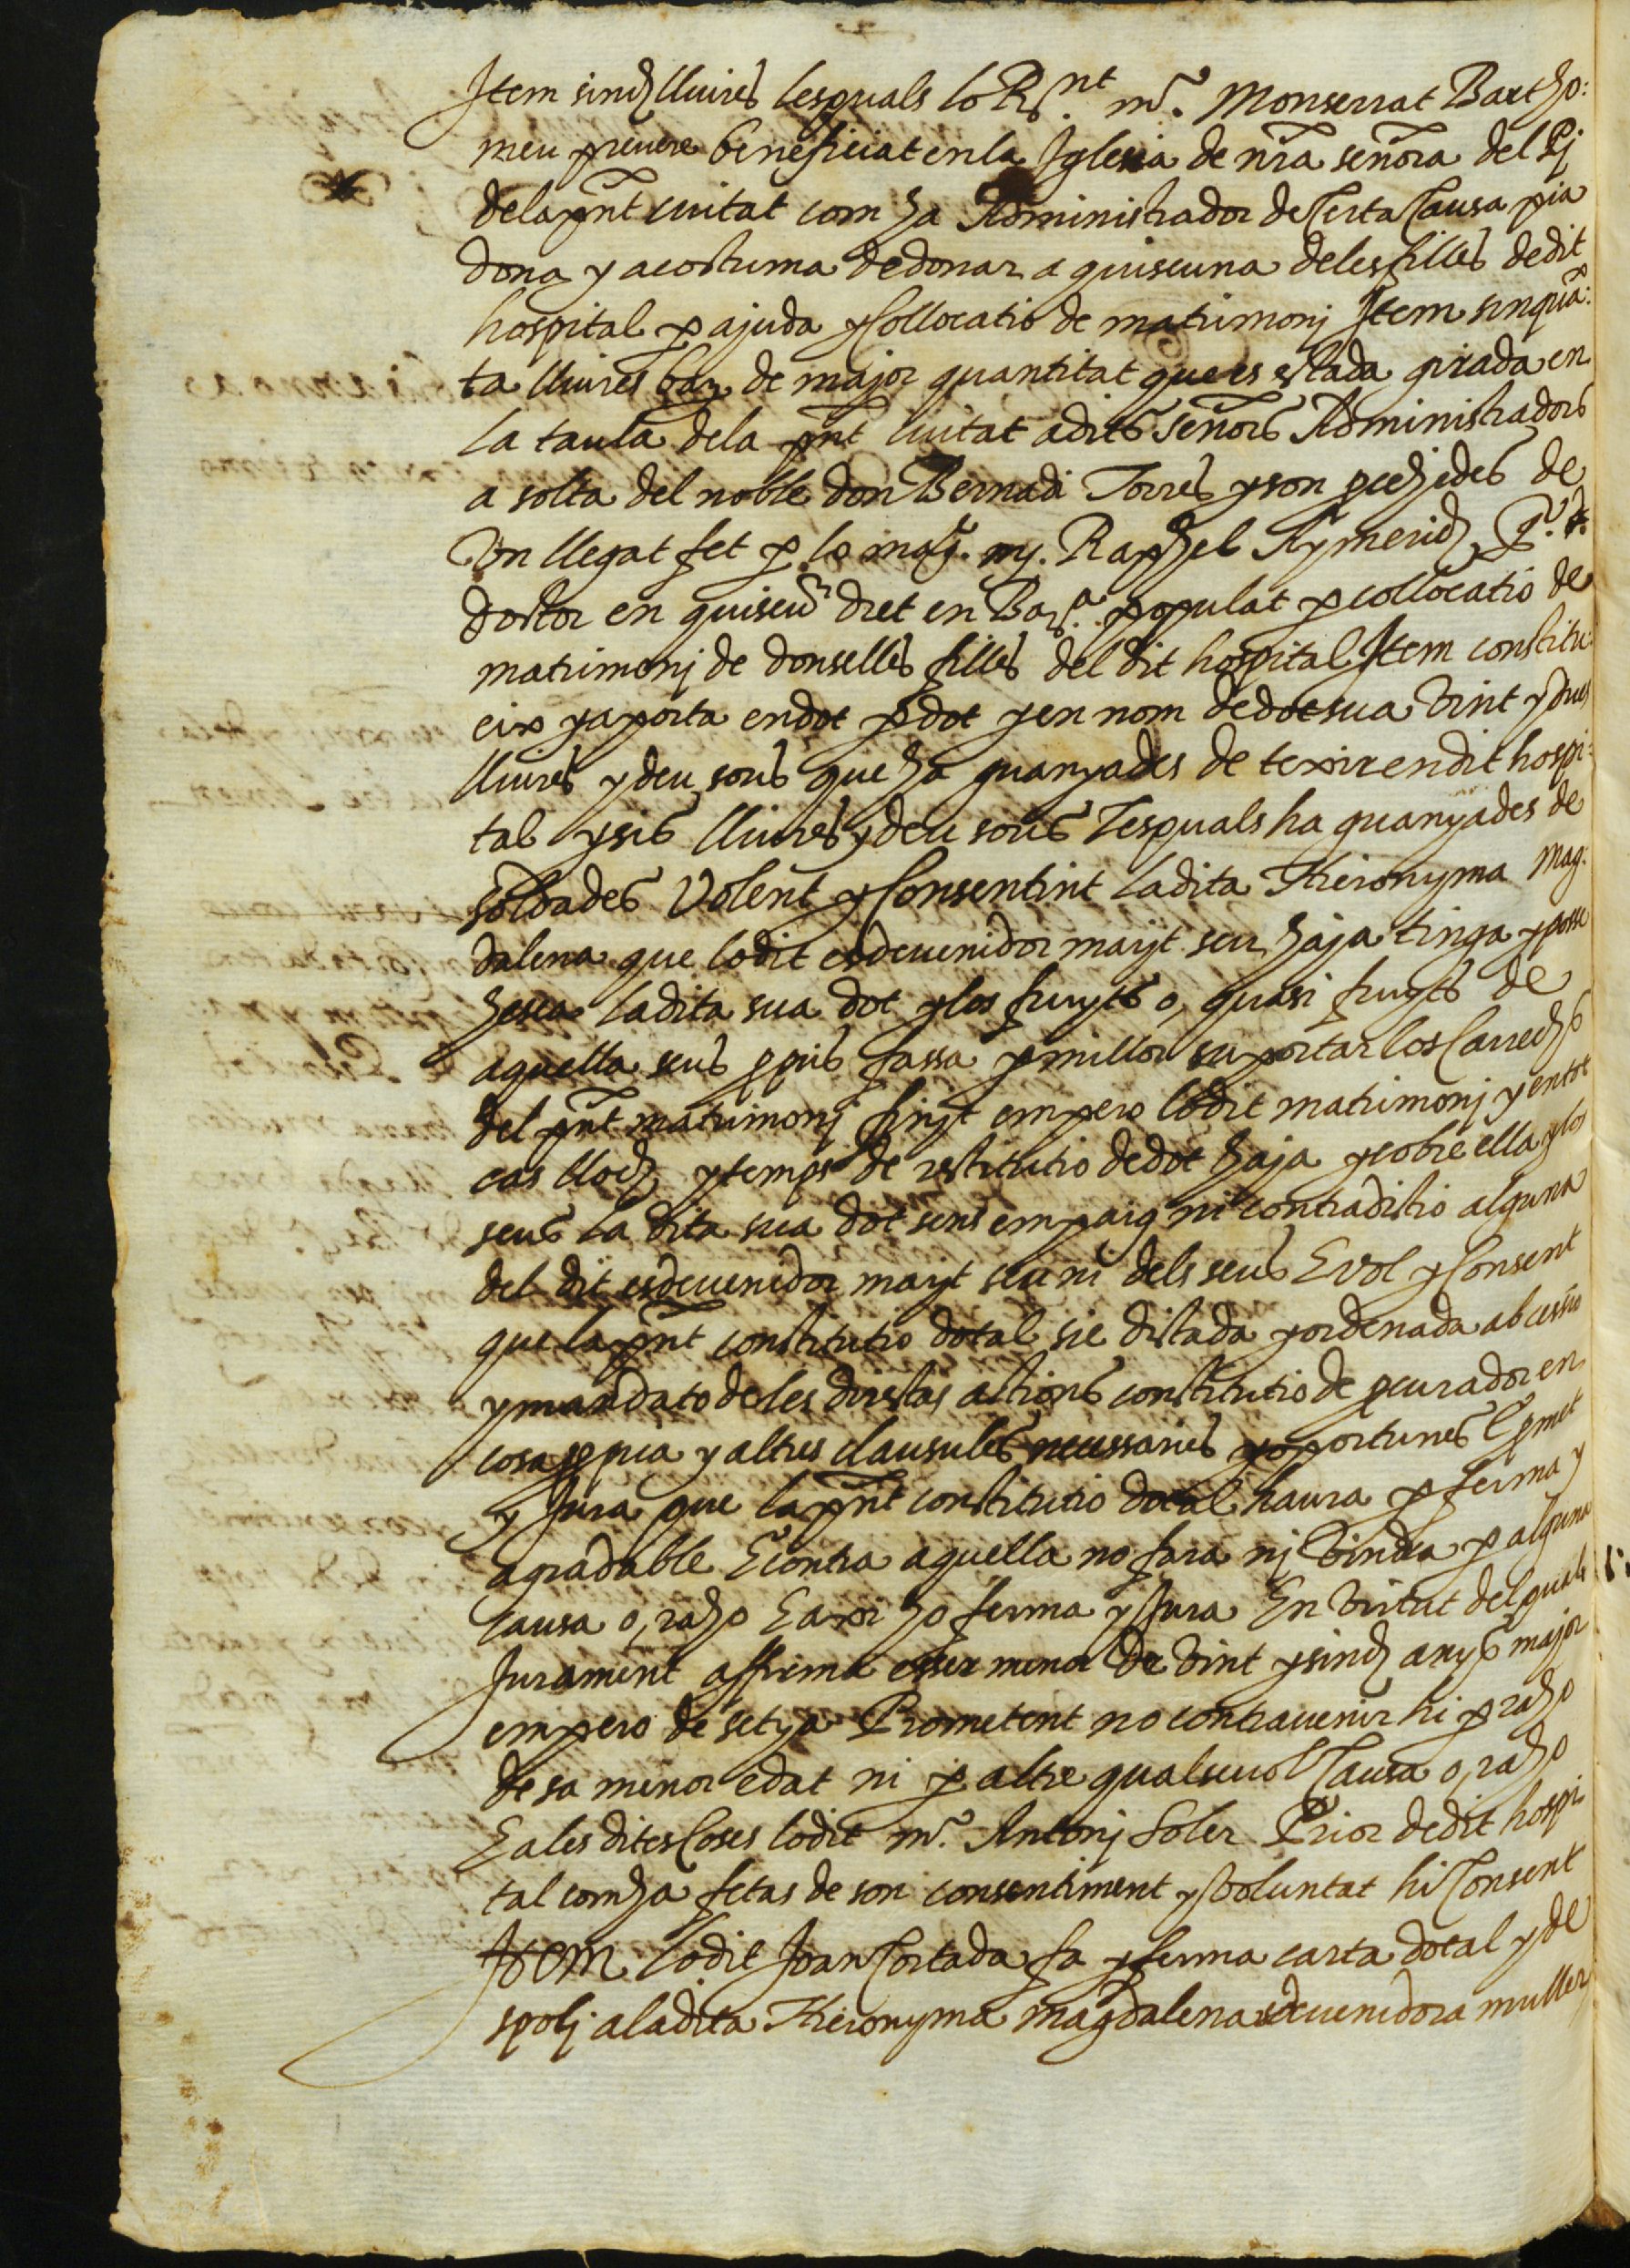 Item sinch lliures lesquals lo Rnt. mr. Monserrat Bartho:
meu preuere beneficiat en la Iglesia de nra señora del Pj
dela pnt ciutat com ha Administrador de Certa Causa pia
dona y acostuma de donar a quiscuna deles filles de dit
hospital p ajuda y Collocatio de matrimonj Item sinquã:
ta lliures bar de major quantitat que es estada girada en
la taula dela pnt ciutat adits señors Administradors
a solta del noble don Bernadi Torres y son pcehides de
Vn llegat fet p lo magh. mj. Raphel Aymerich qº.
doctor en quiscũ dret en Bara. populat p collocatio de
matrimonj de donselles filles del dit hospital Item constitu:
eix y aporta en dot p dot y en nom de dot sua Vint y dues
lliures y deu sous que ha guanyades de texir en dit hospi:
tal y sis lliures y deu sous lesquals ha guanyades de
soldades Volent y Consentint la dita Hieronyma Mag:
dalena que lo dit esdeuenidor marit seu haja tinga y posse
hesca la dita sua dot y los fruyts o, quasi fruyts de
aquella seus ppris fassa p millor suportar los Carrechs
del pnt matrimonj finit empero lo dit matrimonj y en tot
cas lloch y temps de restitutio de dot haja y cobre ella y los
seus la dita sua dot sens empaig ni contradictio alguna
del dit esdeuenidor marit seu ni dels seus E vol y Consent
que la pnt constitutio dotal sie dictada y ordenada ab cessio
y mandato de les directas actions constitutio de pcurador en
cosa ppria y altres clausules necessaries y oportunes E pmet
y Jura que la pnt constitutio dotal haura p ferma y
agradable E contra aquella no fara nj Vindra p alguna
causa o, raho E axi ho ferma y Jura En Virtut del qual
Jurament affirma esser menor de Vint y sinch anys major
empero de setya Prometent no contrauenir hi p raho
de sa menor edat ni p altre qualseuol Causa o, raho
E ales dites Coses lo dit mr. Antonj Soler Prior de dit hospi
tal com ha fetas de son consentiment y Voluntat hi Consent
Item lo dit Joan Cortada fa y ferma carta dotal y de
spolj a la dita Hieronyma Magdalena esdeuenidora muller